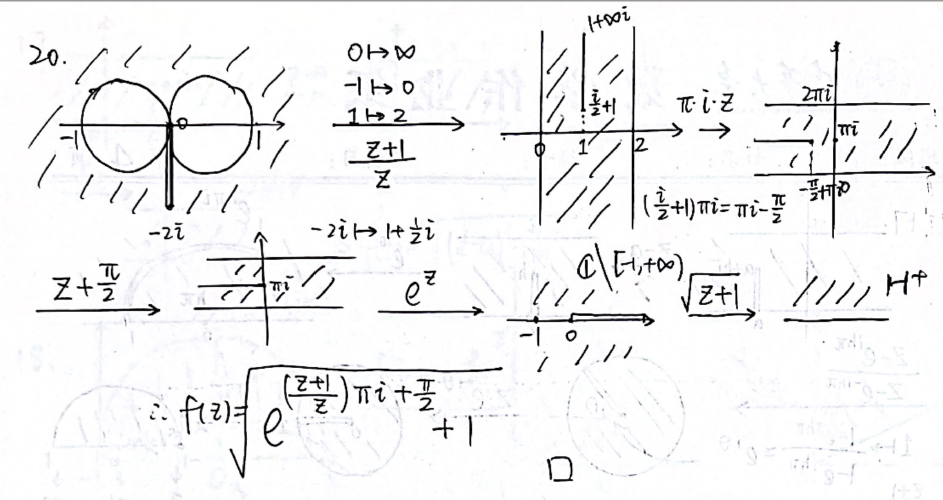 20.
-1 0 1
-2i
0↦∞
-1↦0
1↦2
(z+1)/z
1+∞i
i/2+1
0 1 2
π·i·z
(i/2+1)πi=πi-π/2
2πi
πi
-π/2+πi 0
-2i↦1+½i
z+π/2
πi
e^z
ℂ\[-1,+∞)
-1 0
√(z+1)
H+
∴ f(z)=√(e^(((z+1)/z)πi+π/2)+1)
□